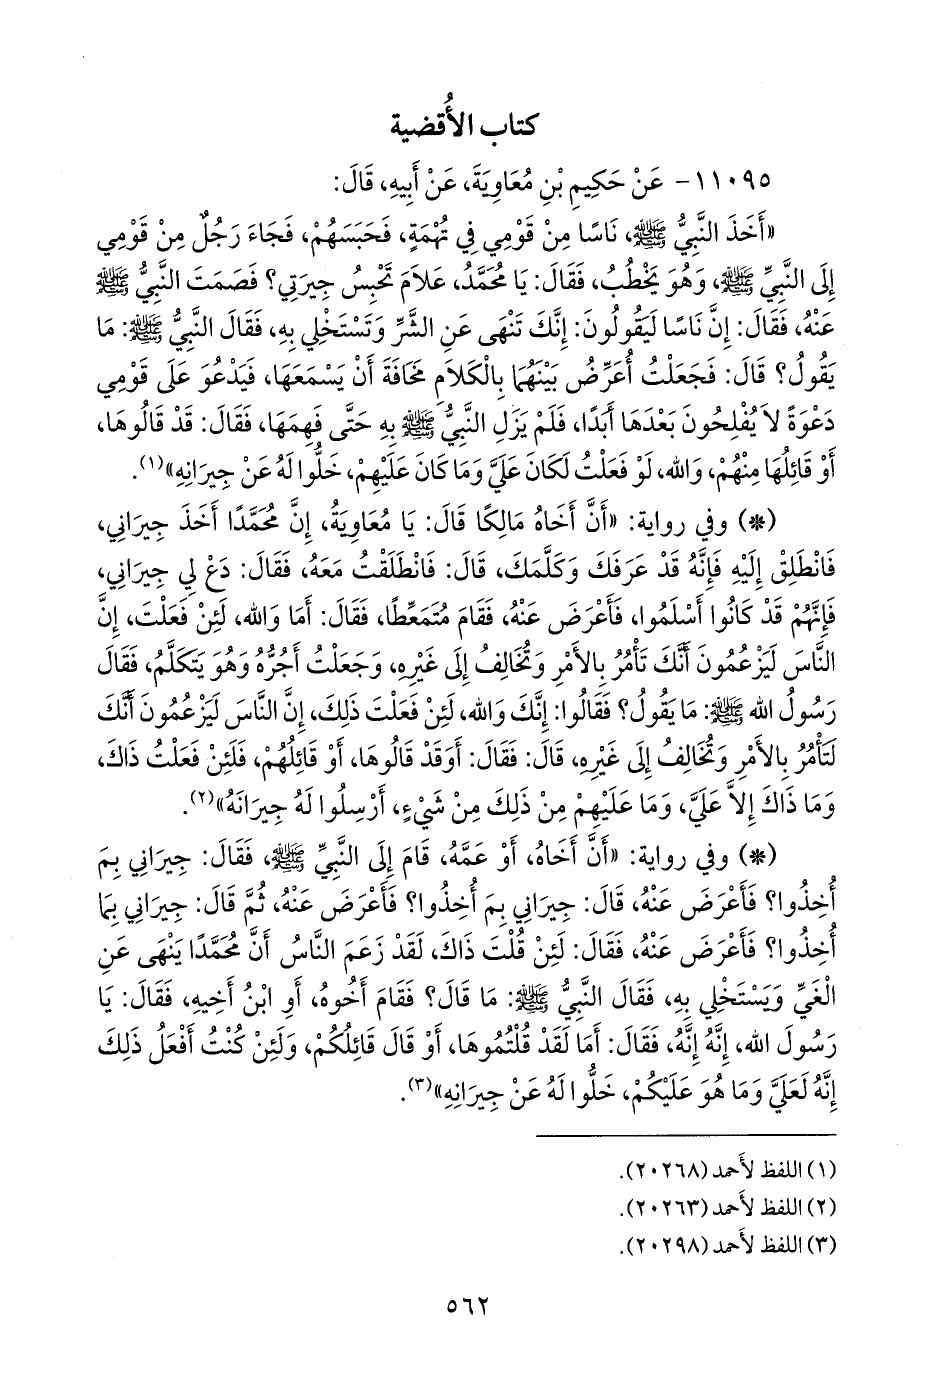 كتاب الأُقضية
١١٠٩٥- عَنْ حَكِيمِ بْنِ مُعَاوِيَةَ، عَنْ أَبِيهِ، قَالَ:
«أَخَذَ النَّبِيُّ ﷺ، نَاسًا مِنْ قَوْمِي فِي تُهْمَةٍ، فَحَبَسَهُمْ، فَجَاءَ رَجُلٌ مِنْ قَوْمِي
إِلَى النَّبِيِّ ﷺ، وَهُوَ يَخْطُبُ، فَقَالَ: يَا مُحَمَّدُ، عَلاَمَ تَحْبِسُ جِيرَتِي؟ فَصَمَتَ النَّبِيُّ ﷺ
عَنْهُ، فَقَالَ: إِنَّ نَاسًا لَيَقُولُونَ: إِنَّكَ تَنْهَى عَنِ الشَّرِّ وَتَسْتَخْلِي بِهِ، فَقَالَ النَّبِيُّ ﷺ: مَا
يَقُولُ؟ قَالَ: فَجَعَلْتُ أُعَرِّضُ بَيْنَهُمَا بِالْكَلاَمِ مَخَافَةَ أَنْ يَسْمَعَهَا، فَيَدْعُوَ عَلَى قَوْمِي
دَعْوَةً لاَ يُفْلِحُونَ بَعْدَهَا أَبَدًا، فَلَمْ يَزَلِ النَّبِيُّ ﷺ بِهِ حَتَّى فَهِمَهَا، فَقَالَ: قَدْ قَالُوهَا،
أَوْ قَائِلُهَا مِنْهُمْ، وَالله، لَوْ فَعَلْتُ لَكَانَ عَلَيَّ وَمَا كَانَ عَلَيْهِمْ، خَلُّوا لَهُ عَنْ جِيرَانِهِ»(١).
(*) وفي رواية: «أَنَّ أَخَاهُ مَالِكًا قَالَ: يَا مُعَاوِيَةُ، إِنَّ مُحَمَّدًا أَخَذَ جِيرَانِي،
فَانْطَلِقْ إِلَيْهِ فَإِنَّهُ قَدْ عَرَفَكَ وَكَلَّمَكَ، قَالَ: فَانْطَلَقْتُ مَعَهُ، فَقَالَ: دَعْ لِي جِيرَانِي،
فَإِنَّهُمْ قَدْ كَانُوا أَسْلَمُوا، فَأَعْرَضَ عَنْهُ، فَقَامَ مُتَمَعِّطًا، فَقَالَ: أَمَا وَالله، لَئِنْ فَعَلْتَ، إِنَّ
النَّاسَ لَيَزْعُمُونَ أَنَّكَ تَأْمُرُ بِالأَمْرِ وَتُخَالِفُ إِلَى غَيْرِهِ، وَجَعَلْتُ أَجُرُّهُ وَهُوَ يَتَكَلَّمُ، فَقَالَ
رَسُولُ الله ﷺ: مَا يَقُولُ؟ فَقَالُوا: إِنَّكَ وَالله، لَئِنْ فَعَلْتَ ذَلِكَ، إِنَّ النَّاسَ لَيَزْعُمُونَ أَنَّكَ
لَتَأْمُرُ بِالأَمْرِ وَتُخَالِفُ إِلَى غَيْرِهِ، قَالَ: فَقَالَ: أَوَقَدْ قَالُوهَا، أَوْ قَائِلُهُمْ، فَلَئِنْ فَعَلْتُ ذَاكَ،
وَمَا ذَاكَ إِلاَّ عَلَيَّ، وَمَا عَلَيْهِمْ مِنْ ذَلِكَ مِنْ شَيْءٍ، أَرْسِلُوا لَهُ جِيرَانَهُ»(٢).
(*) وفي رواية: «أَنَّ أَخَاهُ، أَوْ عَمَّهُ، قَامَ إِلَى النَّبِيِّ ﷺ، فَقَالَ: جِيرَانِي بِمَ
أُخِذُوا؟ فَأَعْرَضَ عَنْهُ، قَالَ: جِيرَانِي بِمَ أُخِذُوا؟ فَأَعْرَضَ عَنْهُ، ثُمَّ قَالَ: جِيرَانِي بِمَا
أُخِذُوا؟ فَأَعْرَضَ عَنْهُ، فَقَالَ: لَئِنْ قُلْتَ ذَاكَ، لَقَدْ زَعَمَ النَّاسُ أَنَّ مُحَمَّدًا يَنْهَى عَنِ
الْغَيِّ وَيَسْتَخْلِي بِهِ، فَقَالَ النَّبِيُّ ﷺ: مَا قَالَ؟ فَقَامَ أَخُوهُ، أَوِ ابْنُ أَخِيهِ، فَقَالَ: يَا
رَسُولَ الله، إِنَّهُ إِنَّهُ، فَقَالَ: أَمَا لَقَدْ قُلْتُمُوهَا، أَوْ قَالَ قَائِلُكُمْ، وَلَئِنْ كُنْتُ أَفْعَلُ ذَلِكَ
إِنَّهُ لَعَلَيَّ وَمَا هُوَ عَلَيْكُمْ، خَلُّوا لَهُ عَنْ جِيرَانِهِ»(٣).
(١) اللفظ لأَحمد (٢٠٢٦٨).
(٢) اللفظ لأَحمد (٢٠٢٦٣).
(٣) اللفظ لأَحمد (٢٠٢٩٨).
٥٦٢